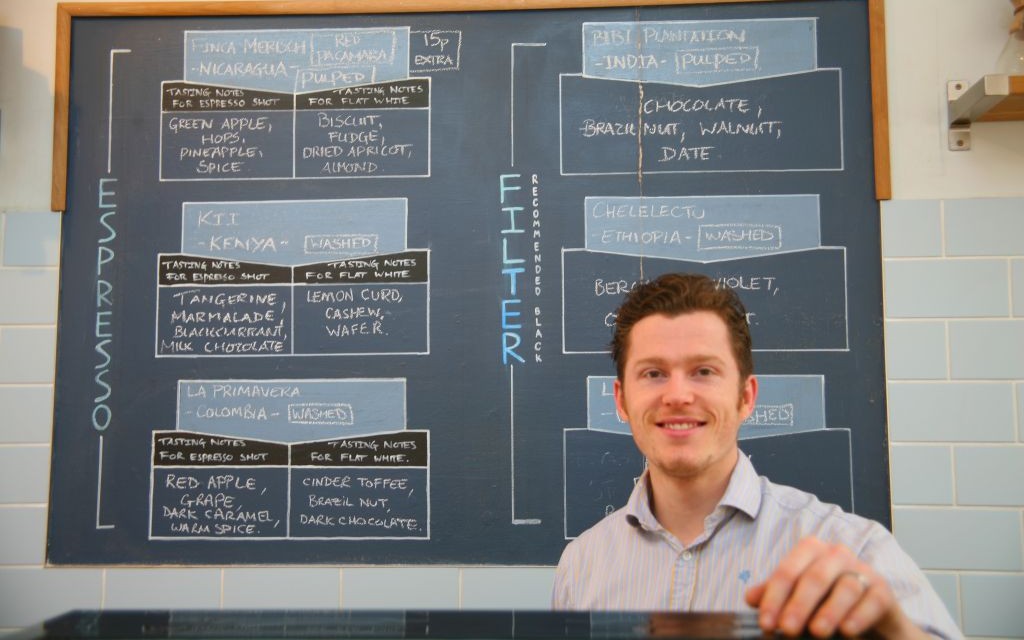 ESPRESSO
FINCA MERISCH
RED
PACAMARA
-NICARAGUA-
PULPED
15p
EXTRA
TASTING NOTES
FOR ESPRESSO SHOT
GREEN APPLE,
HOPS,
PINEAPPLE,
SPICE.
TASTING NOTES
FOR FLAT WHITE
BISCUIT,
FUDGE,
DRIED APRICOT,
ALMOND.
KII
-KENYA- WASHED
TASTING NOTES
FOR ESPRESSO SHOT
TANGERINE,
MARMALADE,
BLACKCURRANT,
MILK CHOCOLATE
TASTING NOTES
FOR FLAT WHITE
LEMON CURD,
CASHEW,
WAFER.
LA PRIMAVERA
-COLOMBIA- WASHED
TASTING NOTES
FOR ESPRESSO SHOT
RED APPLE,
GRAPE,
DARK CARAMEL,
WARM SPICE.
TASTING NOTES
FOR FLAT WHITE.
CINDER TOFFEE,
BRAZIL NUT,
DARK CHOCOLATE.
FILTER
RECOMMENDED BLACK
BIBI PLANTATION
-INDIA- PULPED
CHOCOLATE,
BRAZIL NUT, WALNUT,
DATE
CHELELECTU
-ETHIOPIA- WASHED